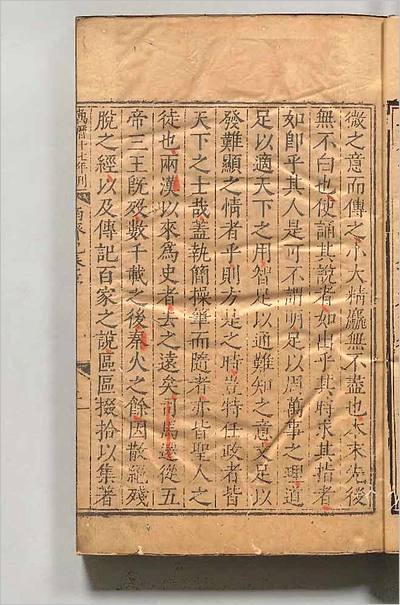 微之意而傳之小大精麤無不盡也本末先後
無不白也使誦其說者如出乎其時求其指者
如卽乎其人是可不謂明足以周萬事之理道
足以適天下之用智足以通難知之意文足以
發難顯之情者乎則方是之時豈特任政者皆
天下之士哉蓋執簡操筆而隨者亦皆聖人之
徒也兩漢以來爲史者去之遠矣司馬遷從五
帝三王旣殁數千載之後秦火之餘因散絕殘
脫之經以及傳記百家之說區區掇拾以集著
萬曆十七年刊